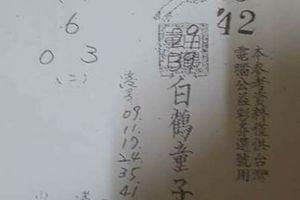 42
本參考資料僅供台灣
電腦公益彩券選號用
29
39
白鶴童子
6
0 3
(二)
09.
11.
17.
24.
35.
41